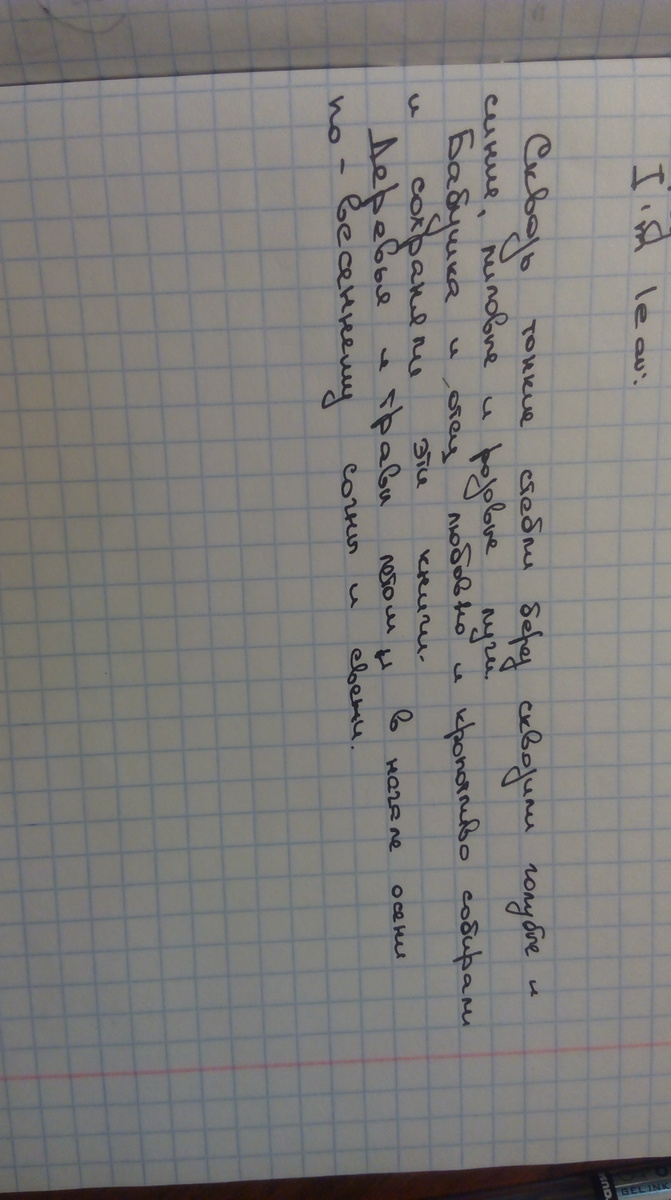 leav:
Сквозь тонкие стебли беру сквозили голубые и
синие, лиловые и розовые луги.
Бабушка и отец любовно и кропотливо собирали
и сохраняли эти книги.
Деревья и травы летом и в начале осени
по-весеннему сочны и свежи.